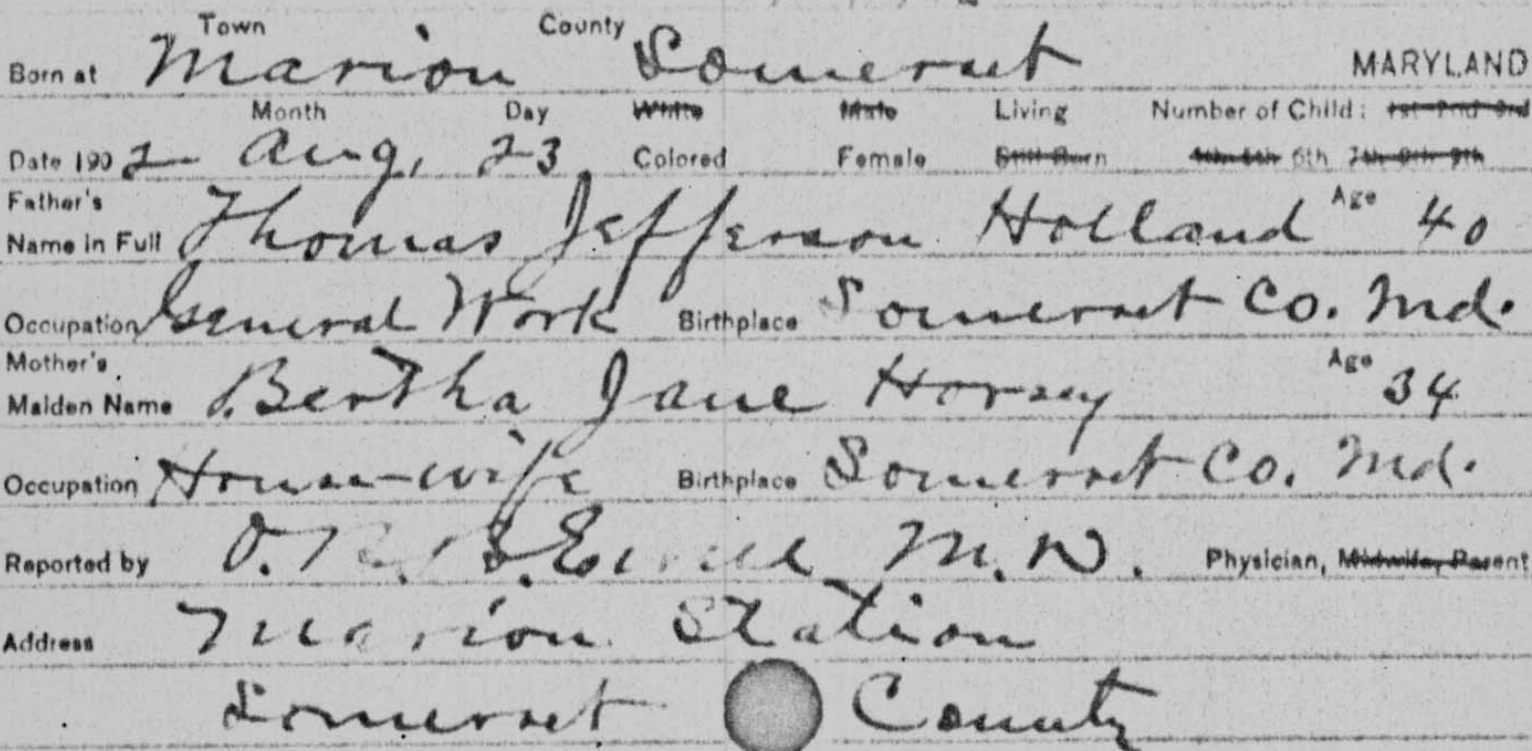 Town County
Born at Marion Somerset MARYLAND
Month Day White Male Living Number of Child: 1st 2nd 3rd
Date 1902 Aug, 23 Colored Female Still Born 4th 5th 6th 7th 8th 9th
Father's Age
Name in Full Thomas Jefferson Holland 40
Occupation General Work Birthplace Somerset Co. Md.
Mother's Age
Maiden Name Bertha Jane Horsey 34
Occupation House-wife Birthplace Somerset Co. Md.
Reported by M.D. Physician, Midwife, Parent
Address Marion Station
Somerset County